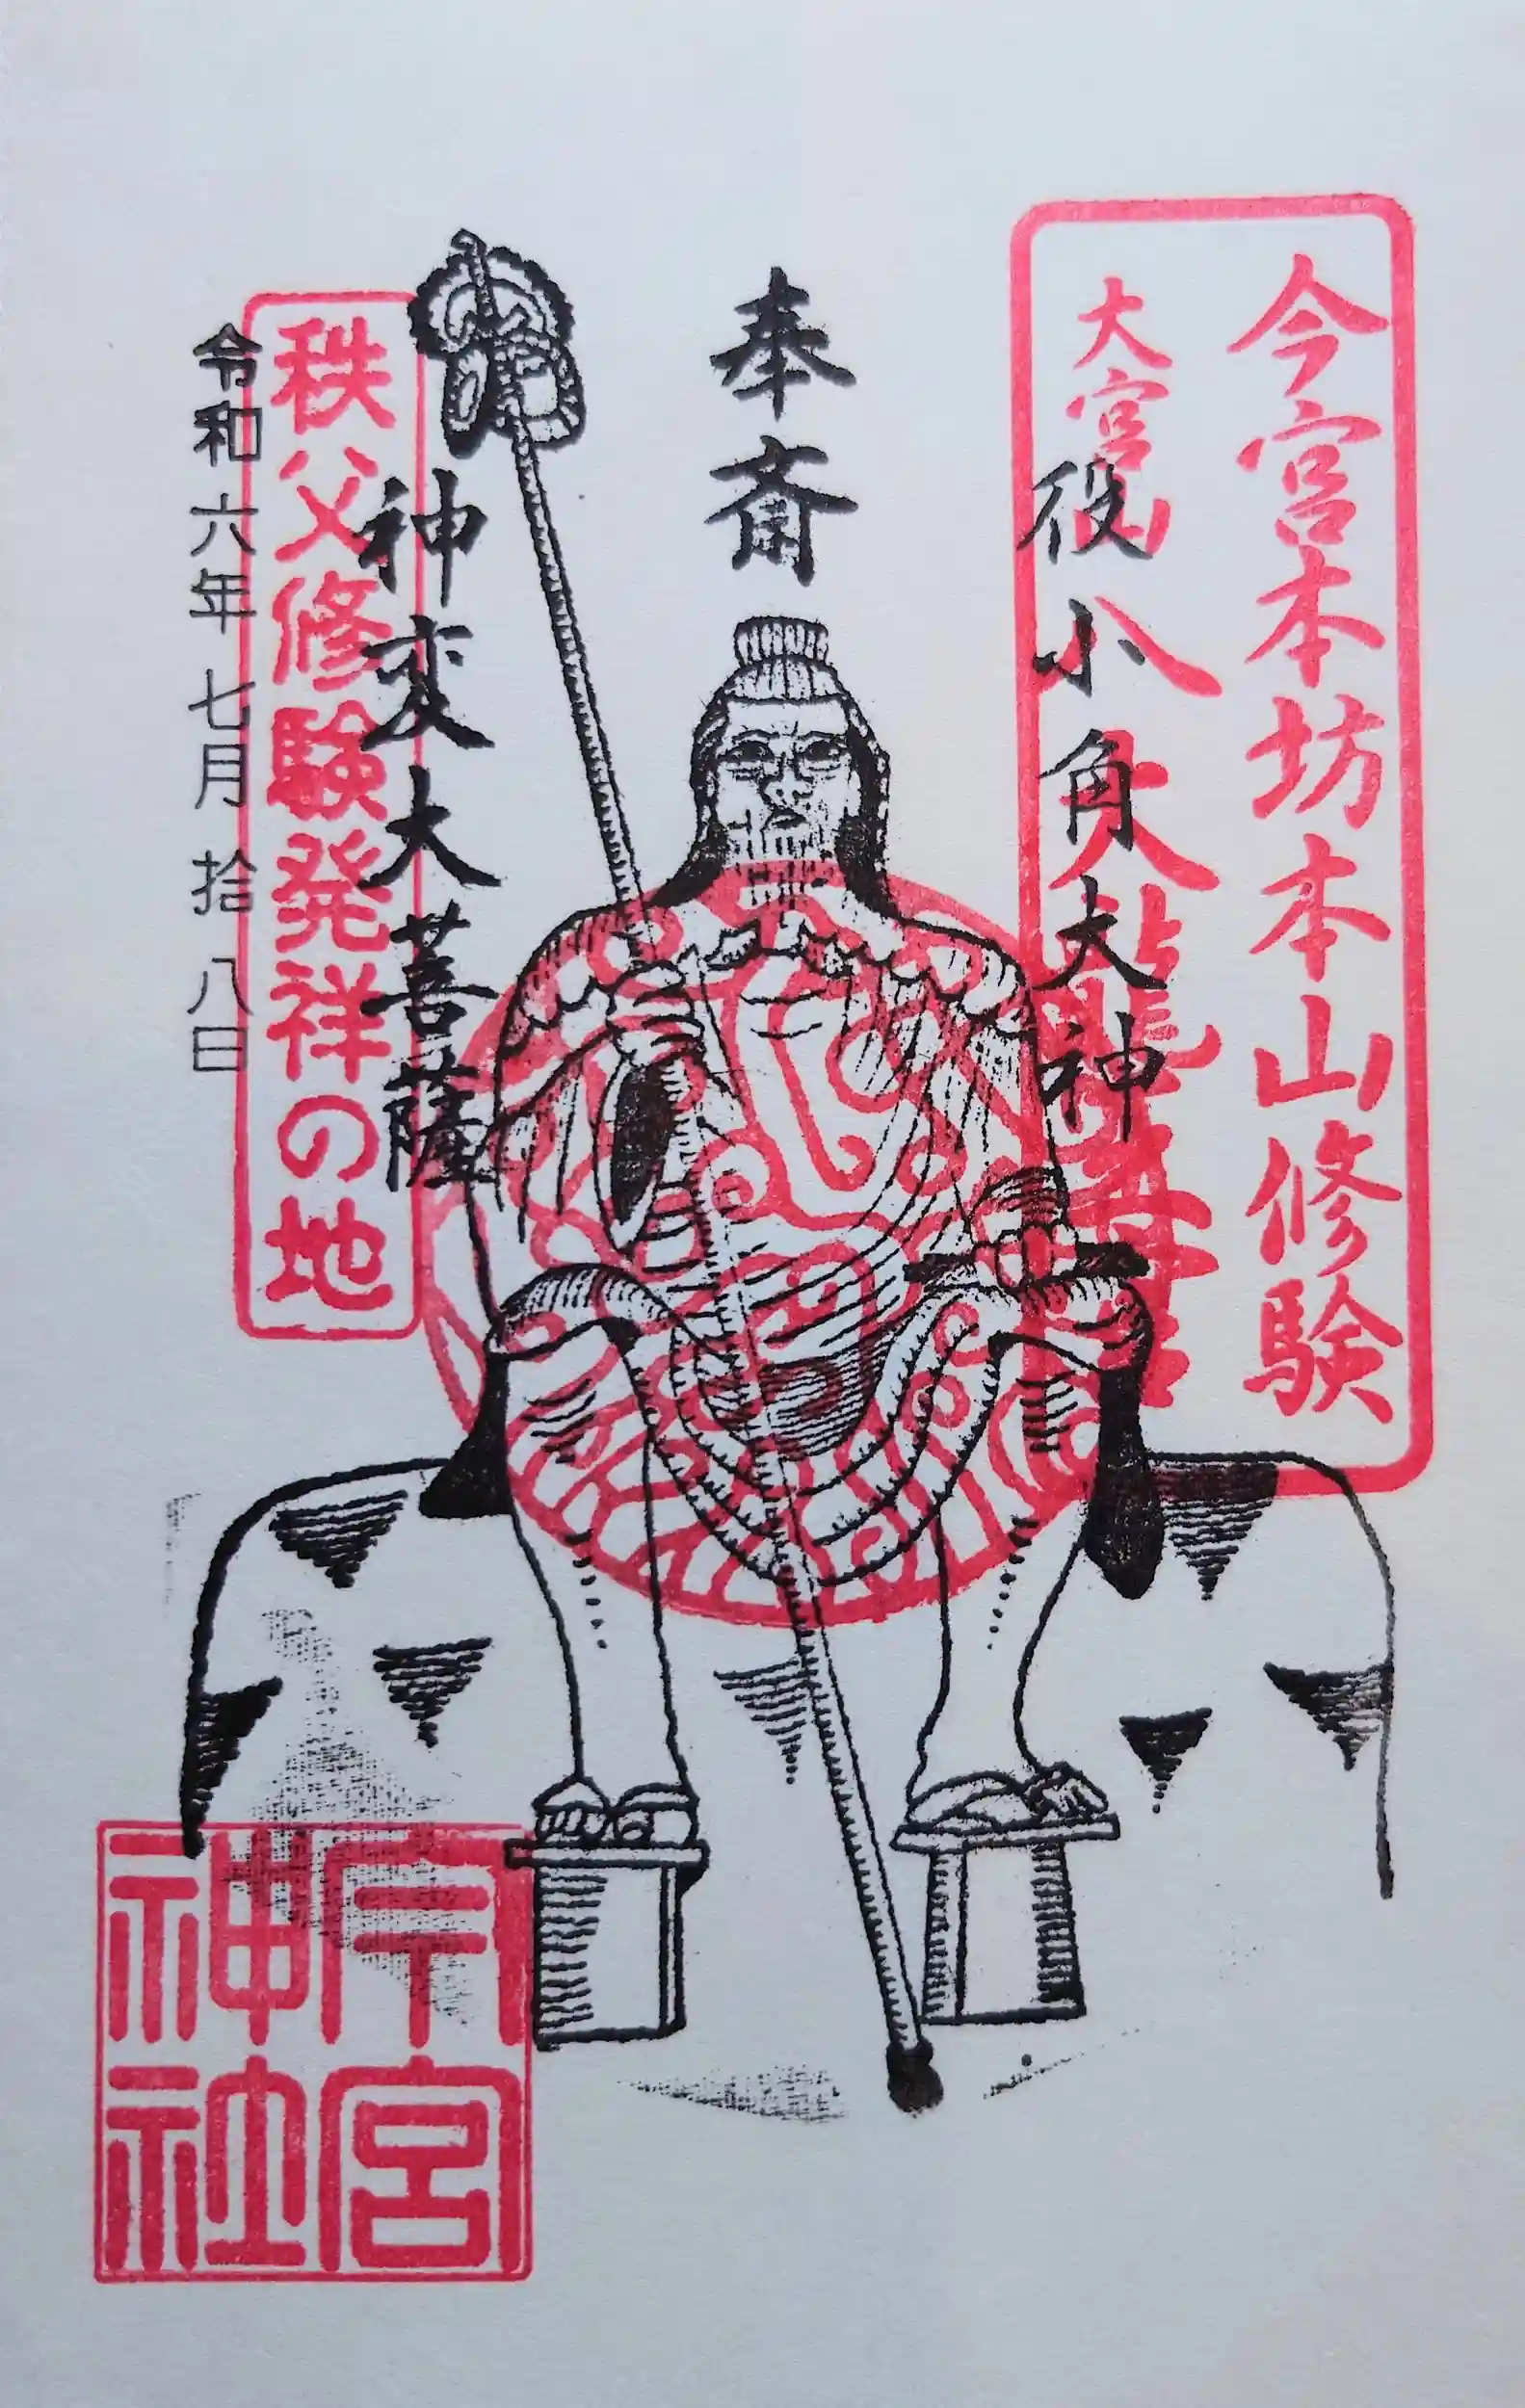 今宮本坊本山修験
大宮山
八大龍
役小角大神
奉斎
神変大菩薩
秩父修験発祥の地
令和六年七月拾八日
今宮神社